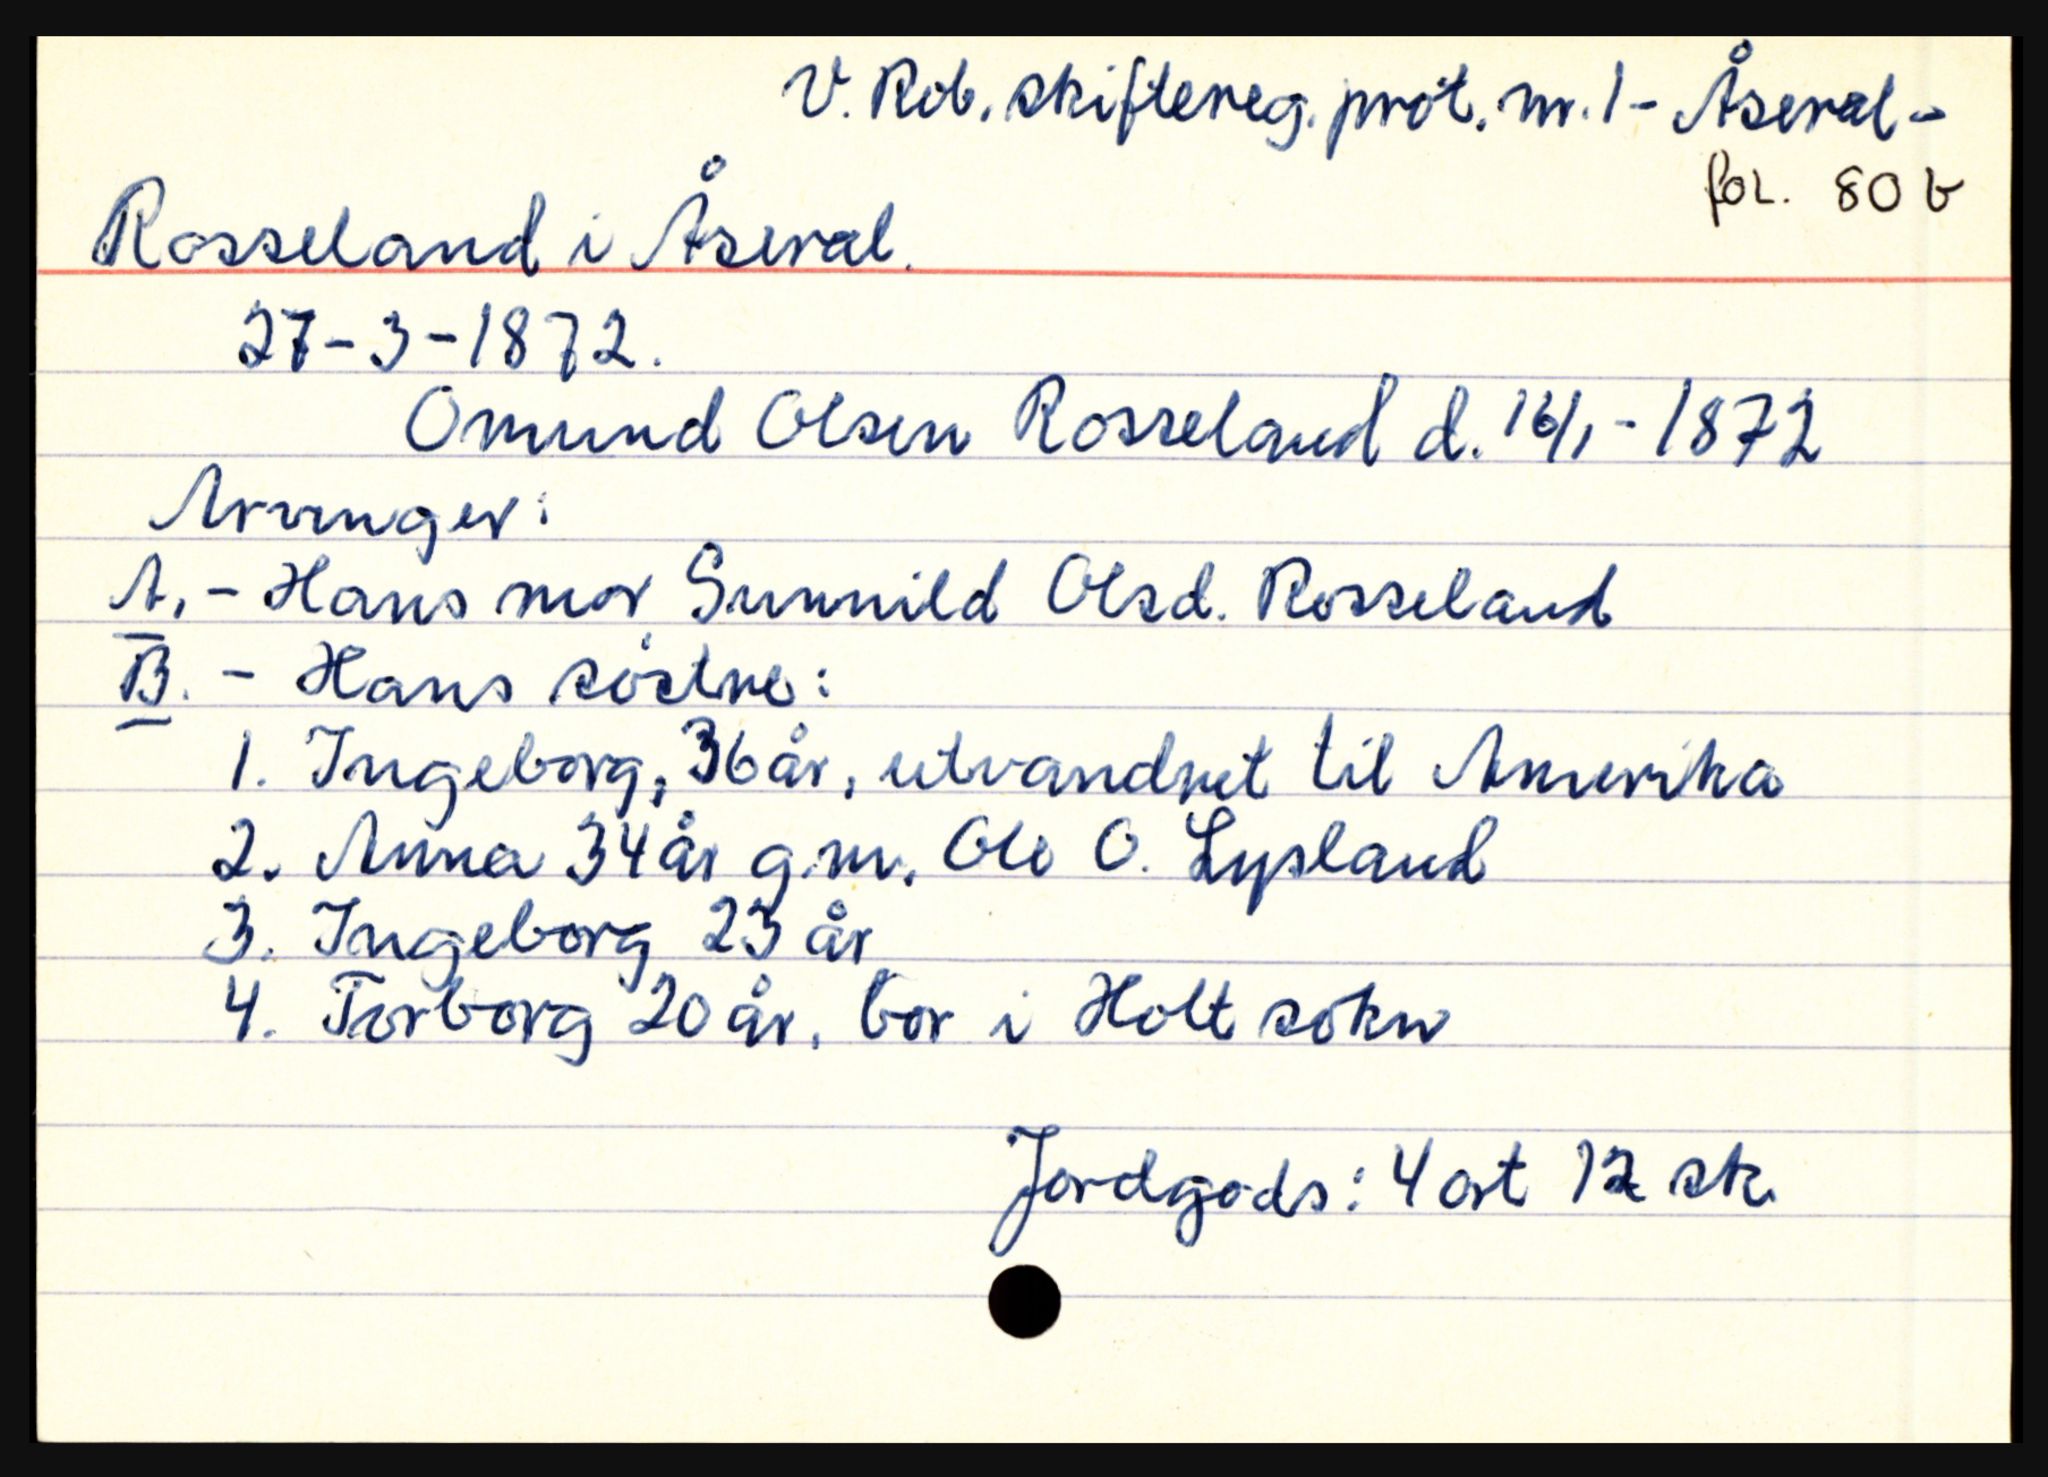 V. Rob. skiftereg. prot. nr. 1 - Åseral -
fol. 80 b
Rosseland i Åseral.
27-3-1872.
Omund Olsen Rosseland d. 16/1-1872
Arvinger:
A. - Hans mor Gunnild Olsd. Rosseland
B. - Hans søstre:
1. Ingeborg, 36 år, utvandret til Amerika
2. Anna 34 år g.m. Ole O. Lysland
3. Ingeborg 23 år
4. Torborg 20 år, bor i Holt sokn
Jordgods: 4 ort 12 sk.